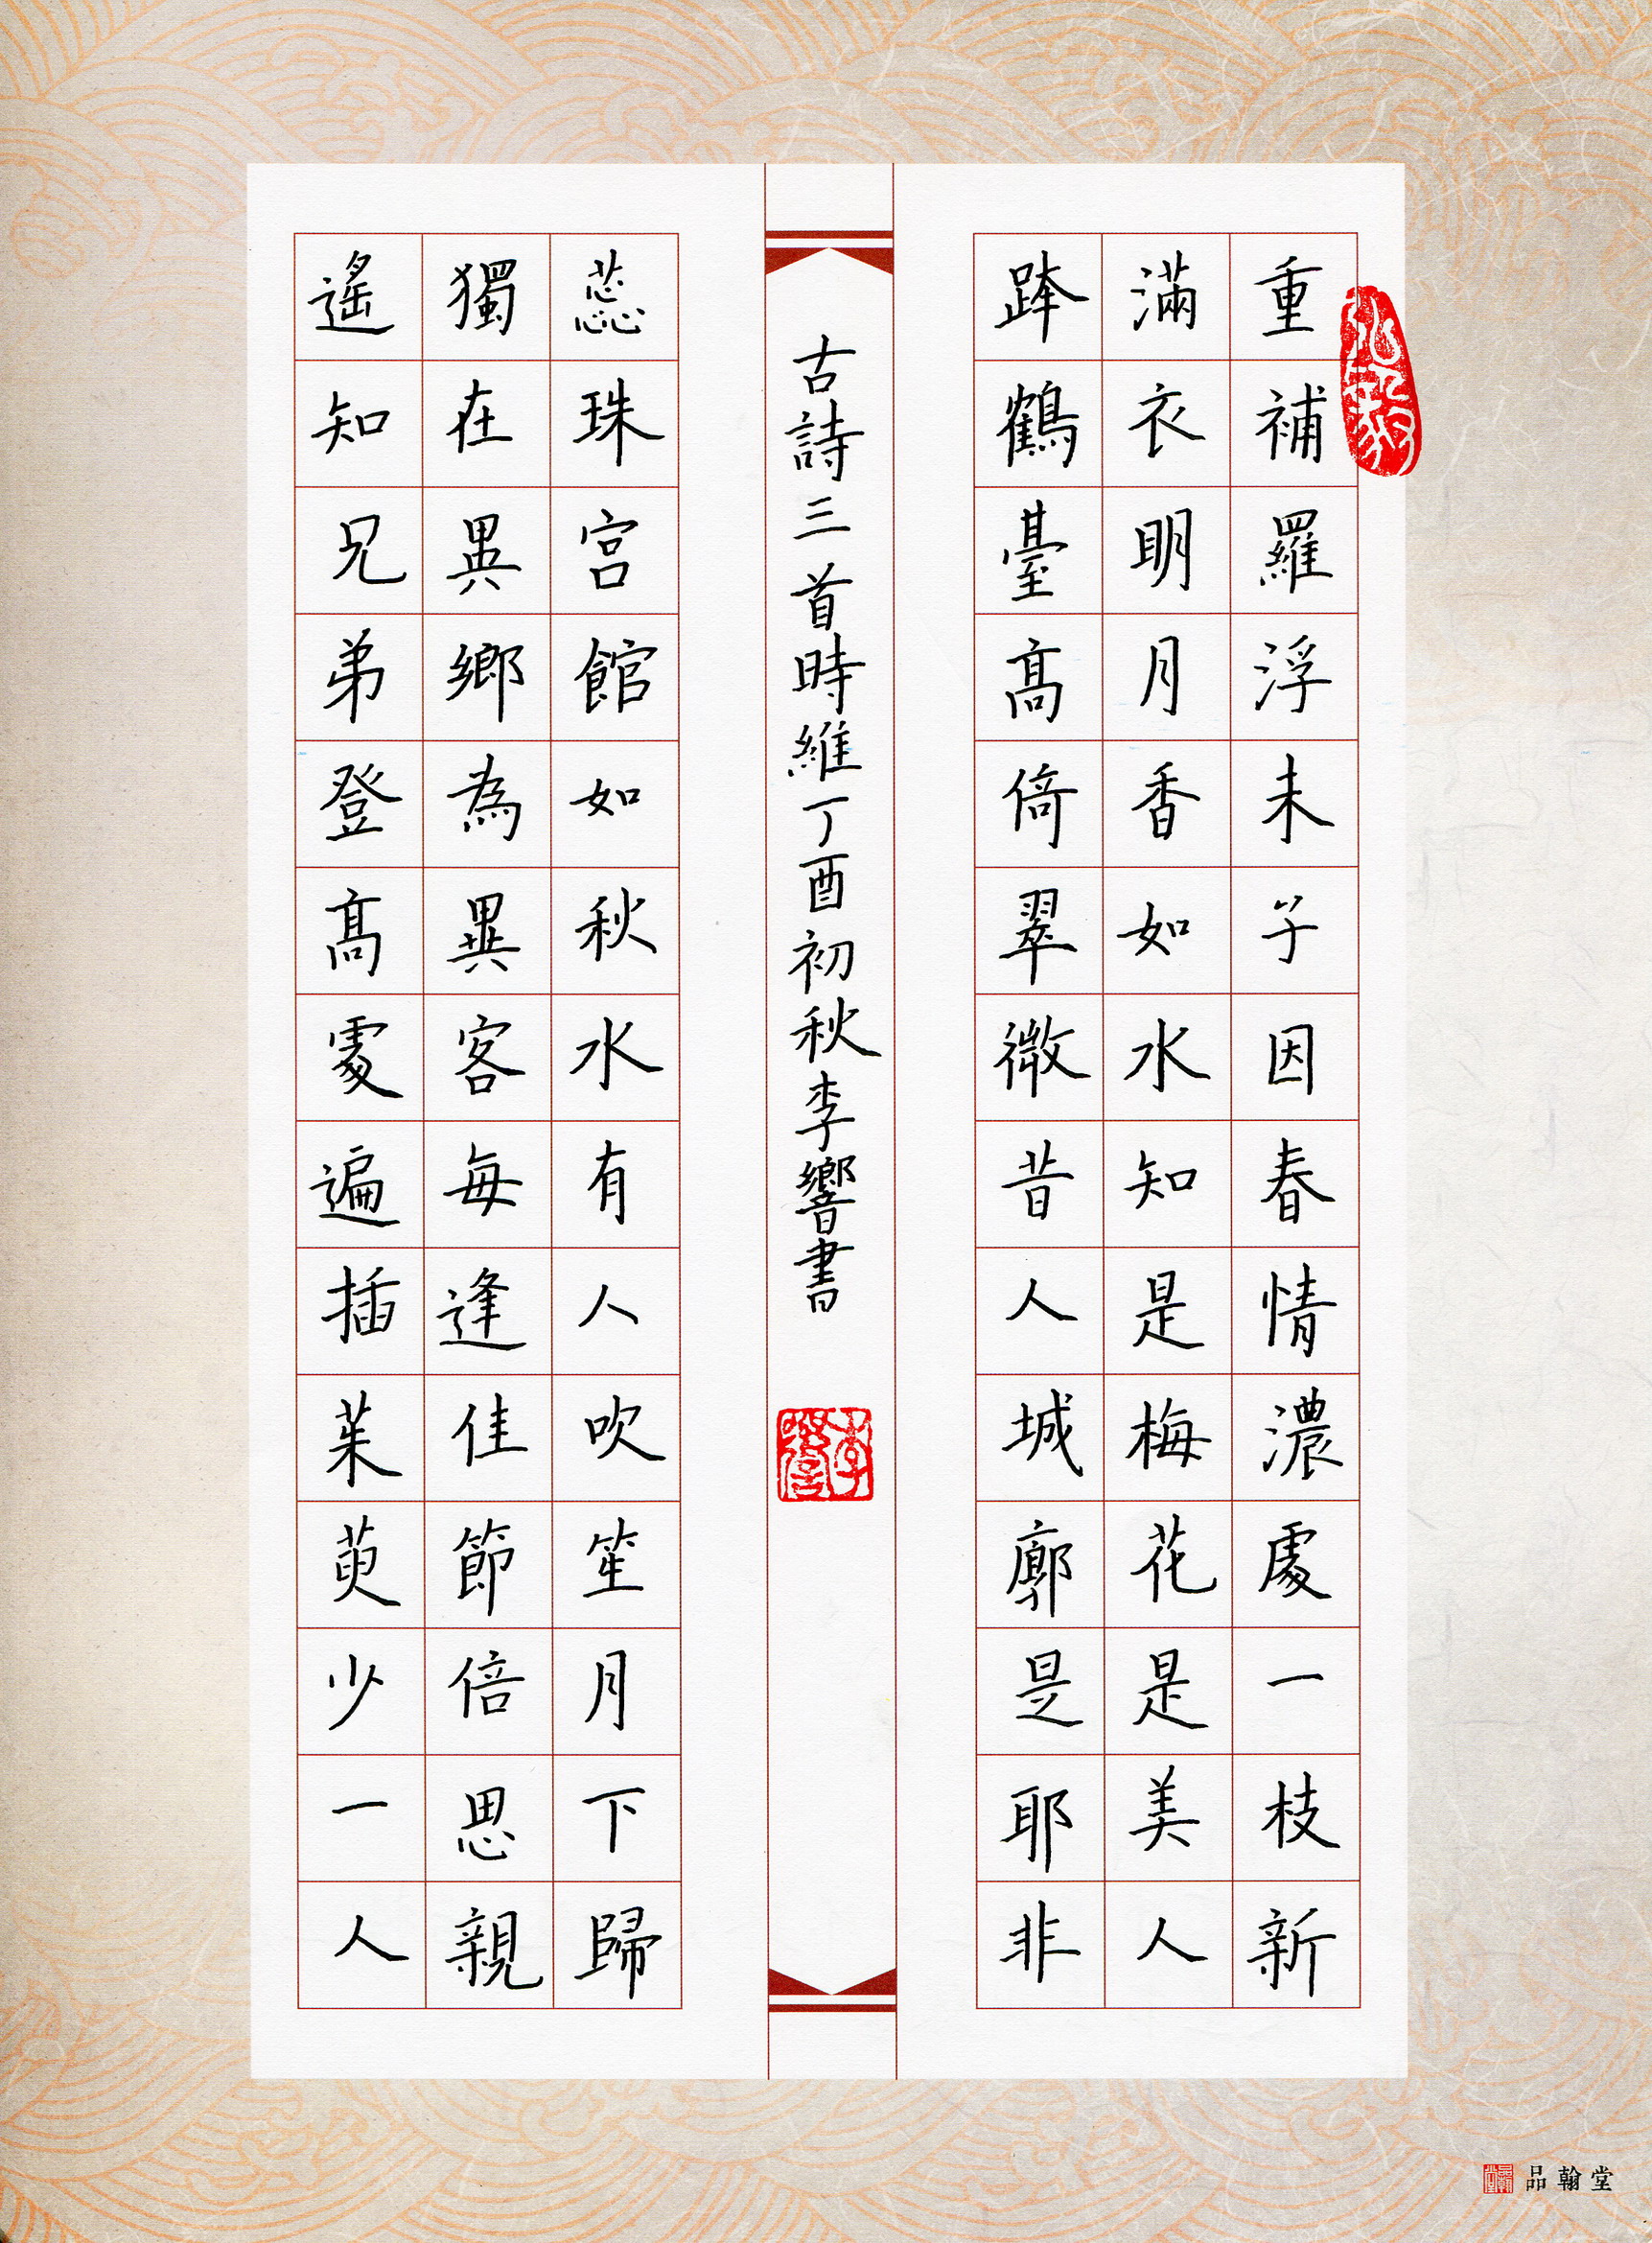 重補羅浮未子因春情濃處一枝新
滿衣明月香如水知是梅花是美人
跨鶴臺高倚翠微昔人城廓是耶非
蕊珠宮館如秋水有人吹笙月下歸
獨在異鄉為異客每逢佳節倍思親
遙知兄弟登高處遍插茱萸少一人
古詩三首時維丁酉初秋李響書
弘毅
李響
品翰堂